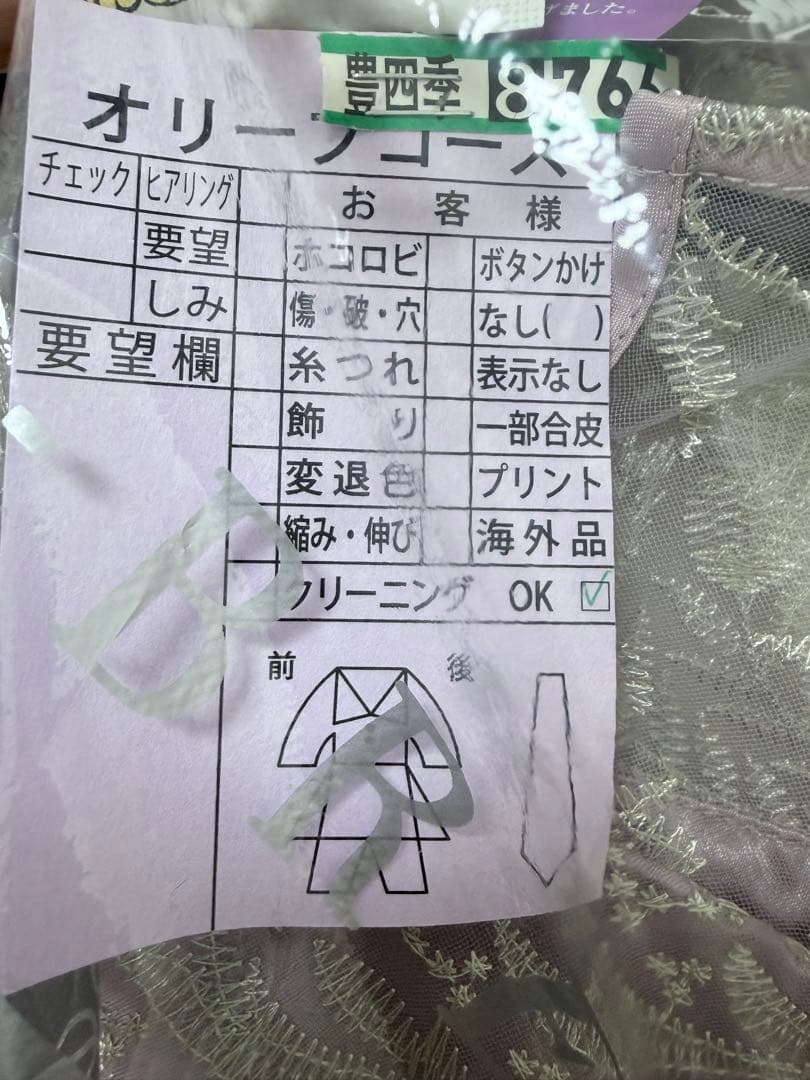 げました。
豊四季 8766
オリーブコース
チェック ヒアリング お客様
要望 ホコロビ ボタンかけ
しみ 傷・破・穴 なし( )
要望欄 糸つれ 表示なし
飾り 一部合皮
変退色 プリント
縮み・伸び 海外品
クリーニング OK ☑
前 後
B
R